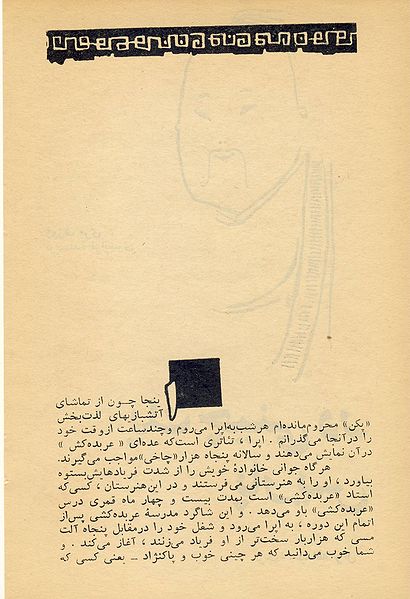 ینجا چون از تماشای
آتشبازیهای لذت‌بخش
«پکن» محروم‌مانده‌ام هرشب‌به‌اپرا می‌روم وچندساعت ازوقت خود
را درآنجا می‌گذرانم . اپرا ، تئاتری است‌که عده‌ای « عربده‌کش »
درآن نمایش می‌دهند و سالانه پنجاه هزار«چاخی»مواجب می‌گیرند.
هرگاه جوانی خانوادهٔ خویش را از شدت فریادهایش‌بستوه
بیاورد ، او را به هنرستانی می‌فرستند و در این‌هنرستان ، کسی‌که
استاد «عربده‌کشی» است بمدت بیست و چهار ماه قمری درس
«عربده‌کشی» باو می‌دهد . و این شاگرد مدرسهٔ عربده‌کشی پس‌از
اتمام این دوره ، به اپرا می‌رود و شغل خود را درمقابل پنجاه آلت
مسی که هزاربار سخت‌تر از او فریاد می‌زنند ، آغاز می‌کند . و
شما خوب می‌دانید که هر چینی خوب و پاکنژاد ــ یعنی کسی که